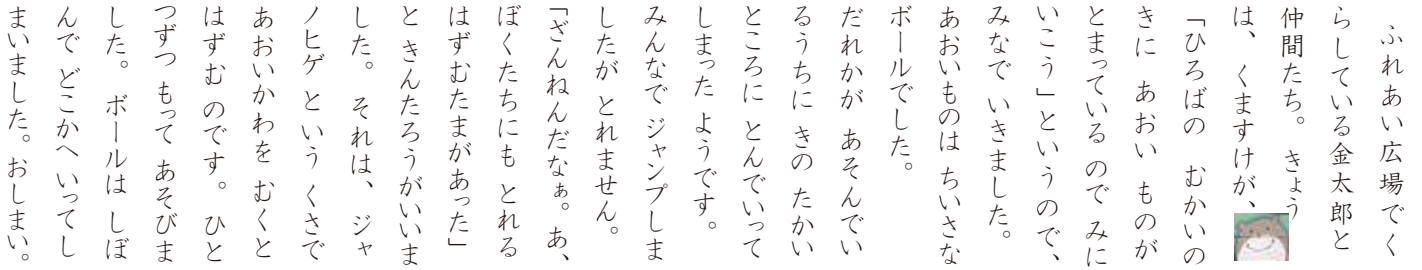 ふれあい広場でく
らしている金太郎と
仲間たち。 きょう
は、 くますけが、
「ひろばの むかいの
きに あおい ものが
とまっている のでみに
いこう」というので、
みなで いきました。
あおいものは ちいさな
ボールでした。
だれかが あそんでい
るうちに きの たかい
ところに とんでいって
しまった ようです。
みんなで ジャンプしま
したが とれません。
「ざんねんだなぁ。あ、
ぼくたちにも とれる
はずむたまがあった」
と きんたろうがいいま
した。 それは、 ジャ
ノヒゲ という くさで
あおいかわを むくと
はずむ のです。 ひと
つずつ もって あそびま
した。 ボールは しぼ
んで どこかへ いってし
まいました。おしまい。